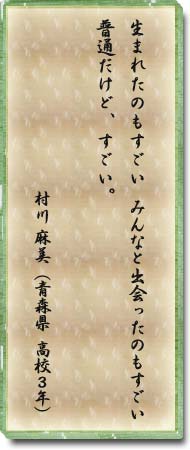 生まれたのもすごい みんなと出会ったのもすごい
普通だけど、すごい。
村川 麻美 （青森県 高校３年）